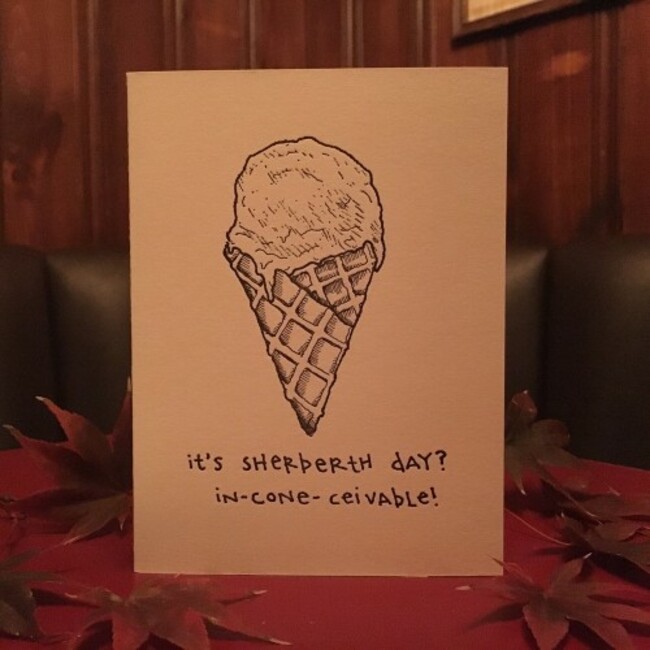 it's sherberth day?
in-cone-ceivable!